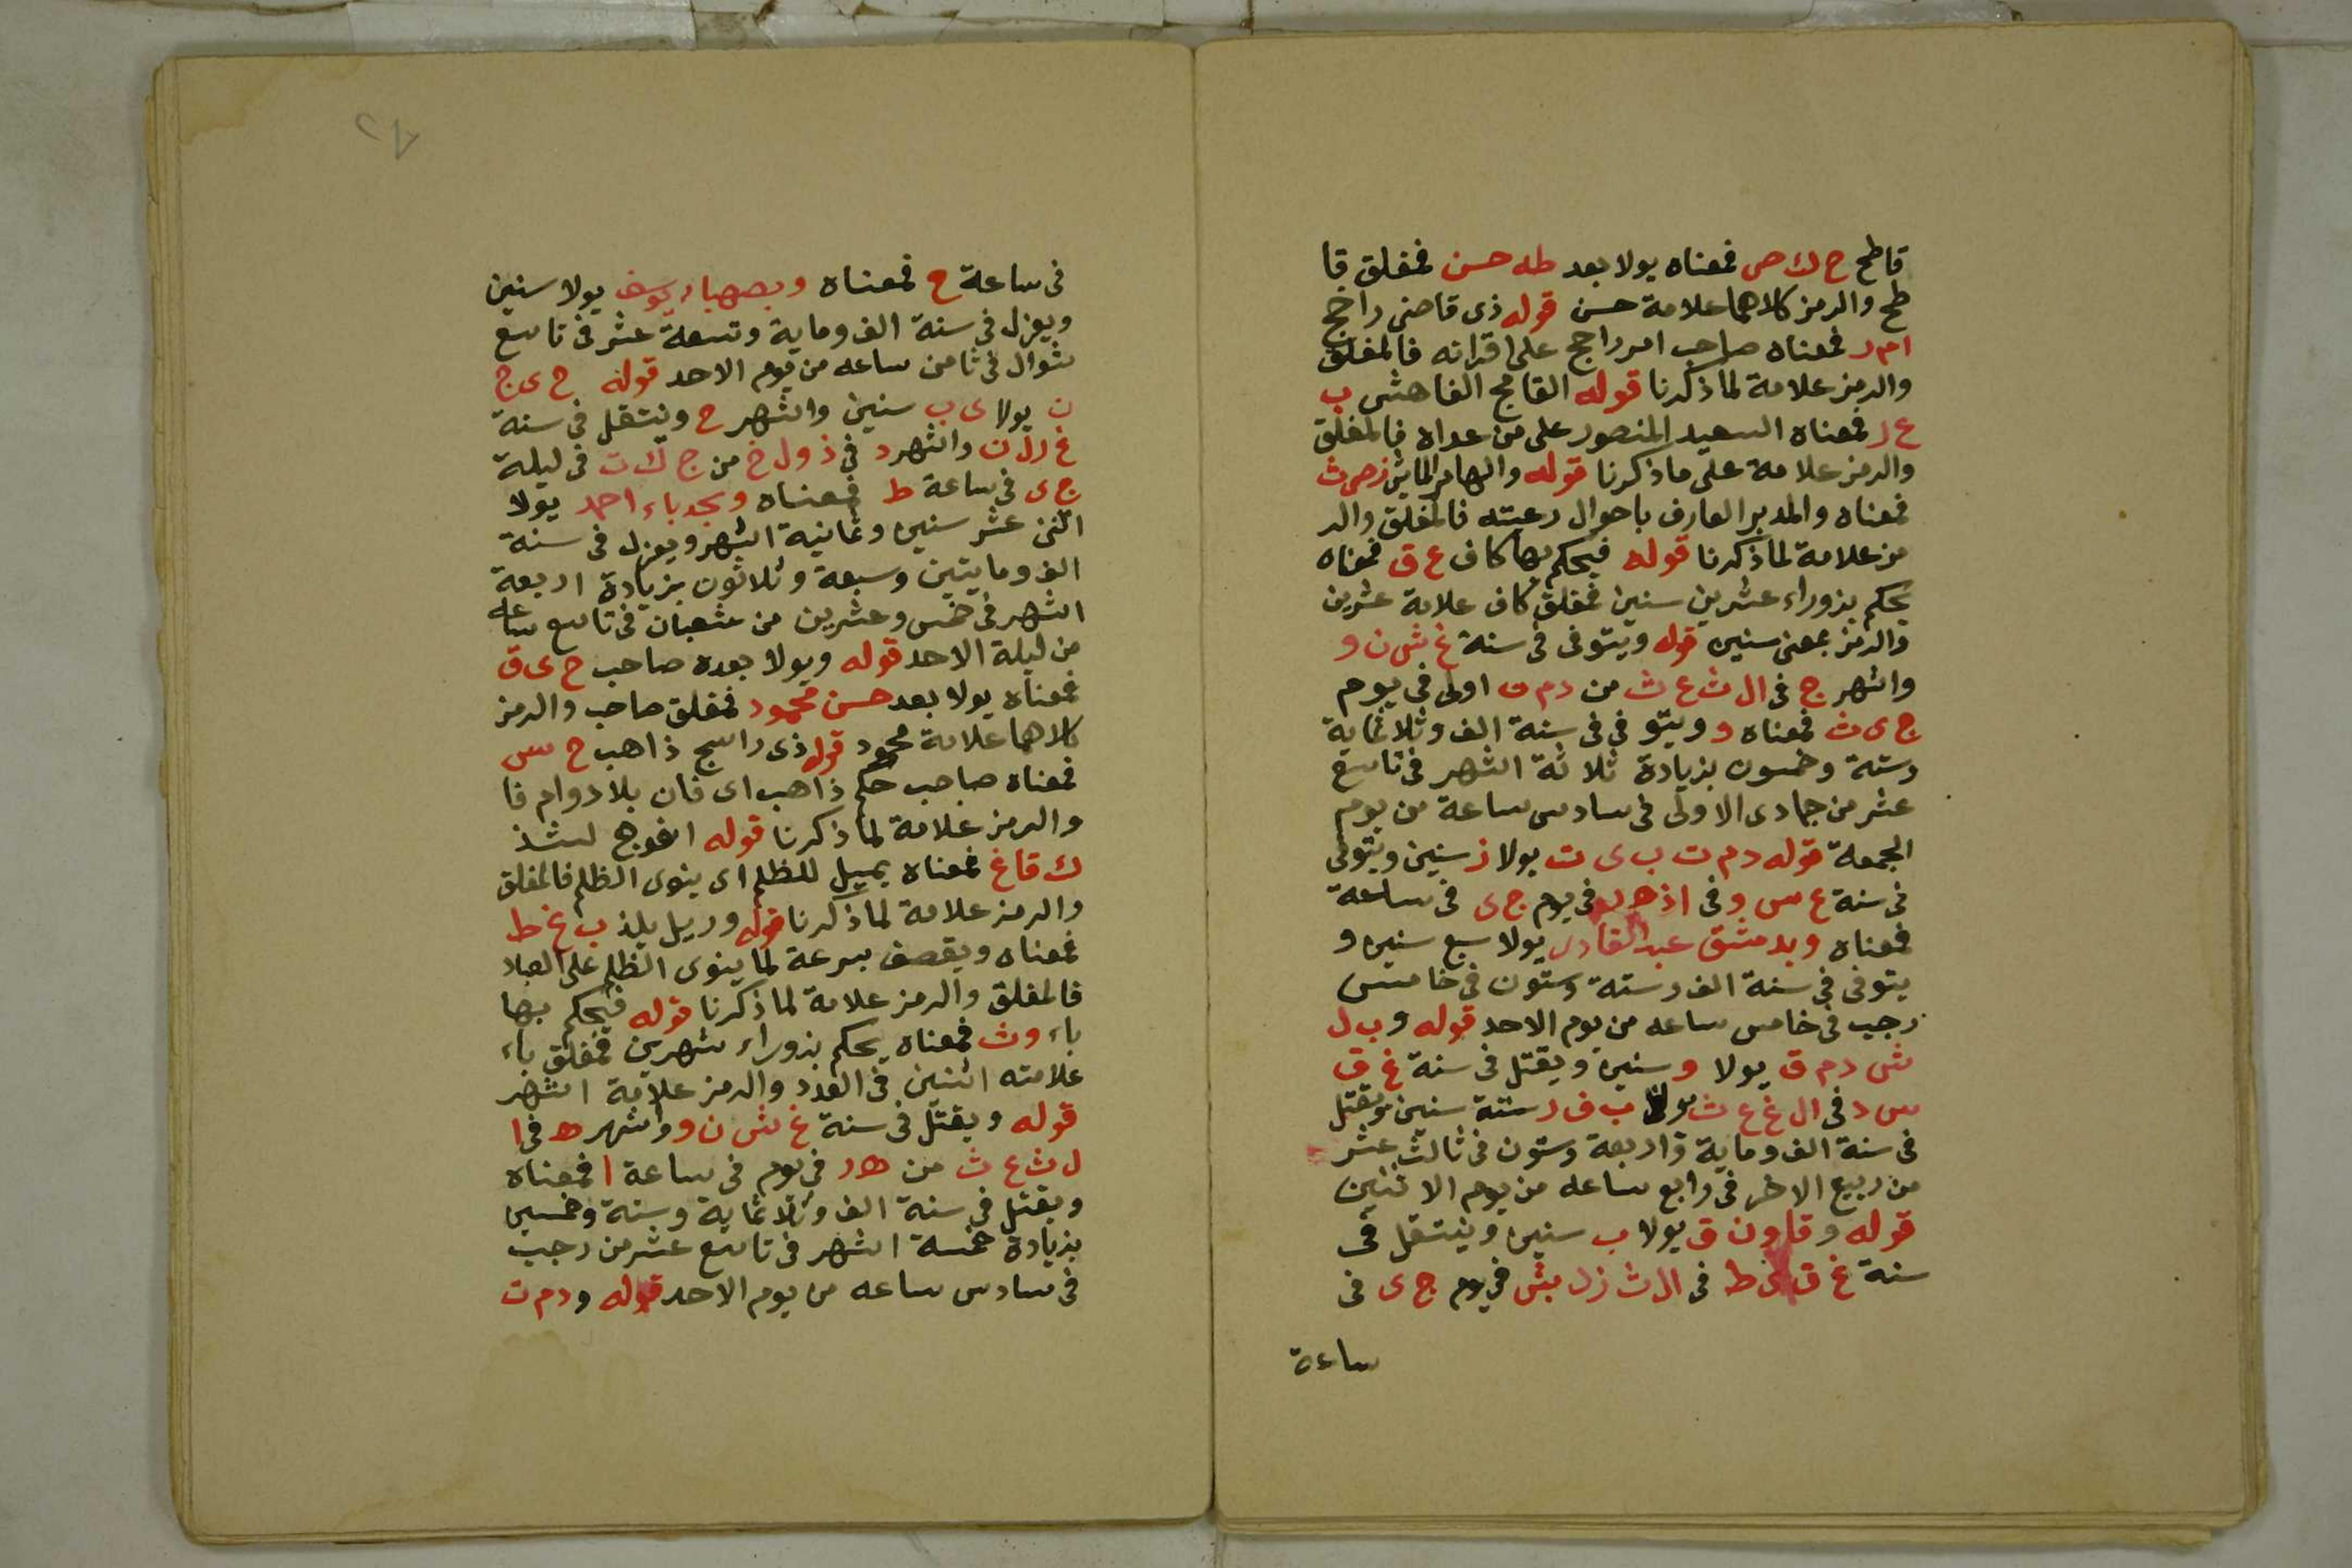 قاطح ح ك ص فمعناه يولا بعد طه حسن فمغلق قا
طح والرمز كلاهما علامة حسن قوله ذى قاضى راجح
ام ر فمعناه صاحب امر راجح على اقرانه فالمغلق
والرمز علامة لما ذكرنا قوله القامح الفاهش ب
ع ر فمعناه السعيد المنصور على من عداه فالمغلق
والرمز علامة على ما ذكرنا قوله والهام
فمعناه والمدبر العارف باحوال رعيته فالمغلق والر
مز علامة لما ذكرنا قوله فيحكم بها كاف ع ق فمعناه
يحكم بزوراء عشرين سنين فمغلق كاف علامة عشرين
والرمز بمعنى سنين قوله ويتوفى فى سنة غ ش ن و
واشهر ج فى ال ث ع ث من دم ت اولى فى يوم
ج ى ث فمعناه و ويتو فى فى سنة الف وثلاثماية
وستة وخمسون بزيادة ثلاثة اشهر فى تاسع
عشر من جمادى الاولى فى سادس ساعة من يوم
الجمعة قوله دم ت ب ى ت يولا ز سنين ويتوفى
فى سنة ع س و فى فى يوم ج ى فى ساعة
فمعناه وبدمشق عبد القادر يولا سبع سنين و
يتوفى فى سنة الف وستة وستون فى خامس
رجب فى خامس ساعه من يوم الاحد قوله وب ل
ش دم ق يولا و سنين ويقتل فى سنة غ ق
س د فى ال غ ع ث يولا ب ف ر ستة سنين ويقتل
فى سنة الف وماية واربعة وستون فى ثالث عشر
من ربيع الاخر فى رابع ساعه من يوم الاثنين
قوله وقاون ق يولا ب سنين وينتقل فى
سنة غ ق ى ط فى ال ث زل بش فى يوم ج ى فى
ساعة
٢٨
فى ساعة ح فمعناه وبصهباء يوسف يولا سنين
ويعزل فى سنة الف وماية وتسعة عشر فى تاسع
شوال فى ثامن ساعه من يوم الاحد قوله ح ى ج
ن يولا ى ب سنين واشهر ح وينتقل فى سنة
غ رل ن واشهر د فى ذ ول خ من ج ك ت فى ليلة
ج ى فى ساعة ط فمعناه وبجدباء احمد يولا
اثنى عشر سنين وثمانية اشهر ويعزل فى سنة
الف ومايتين وسبعة وثلاثون بزيادة اربعة
اشهر فى خمس وعشرين من شعبان فى تاسع ساعه
من ليلة الاحد قوله ويولا بعده صاحب ح ى ق
فمعناه يولا بعد حسن محمود فمغلق صاحب والرمز
كلاهما علامة محمود قوله ذى راسج ذاهب ح س
فمعناه صاحب حكم ذاهب اى فان بلا دوام فا
والرمز علامة لما ذكرنا قوله افوهج لشذ
ك قاغ فمعناه يميل للظلم اى ينوى الظلم فالمغلق
والرمز علامة لما ذكرنا قوله وريل يلذ ب غ ط
فمعناه ويقصف بسرعة لما ينوى الظلم على العباد
فالمغلق والرمز علامة لما ذكرنا قوله فيحكم بها
باء وث فمعناه يحكم بزوراء شهرين فمغلق باء
علامته اثنين فى العدد والرمز علامة اشهر
قوله ويقتل فى سنة غ ش ن و واشهر ه فى ا
ل ث ع ث من ه ر فى يوم فى ساعة ا فمعناه
ويقتل فى سنة الف وثلاثماية وستة وخمسين
بزيادة خمسة اشهر فى تاسع عشر من رجب
فى سادس ساعه من يوم الاحد قوله ودم ت